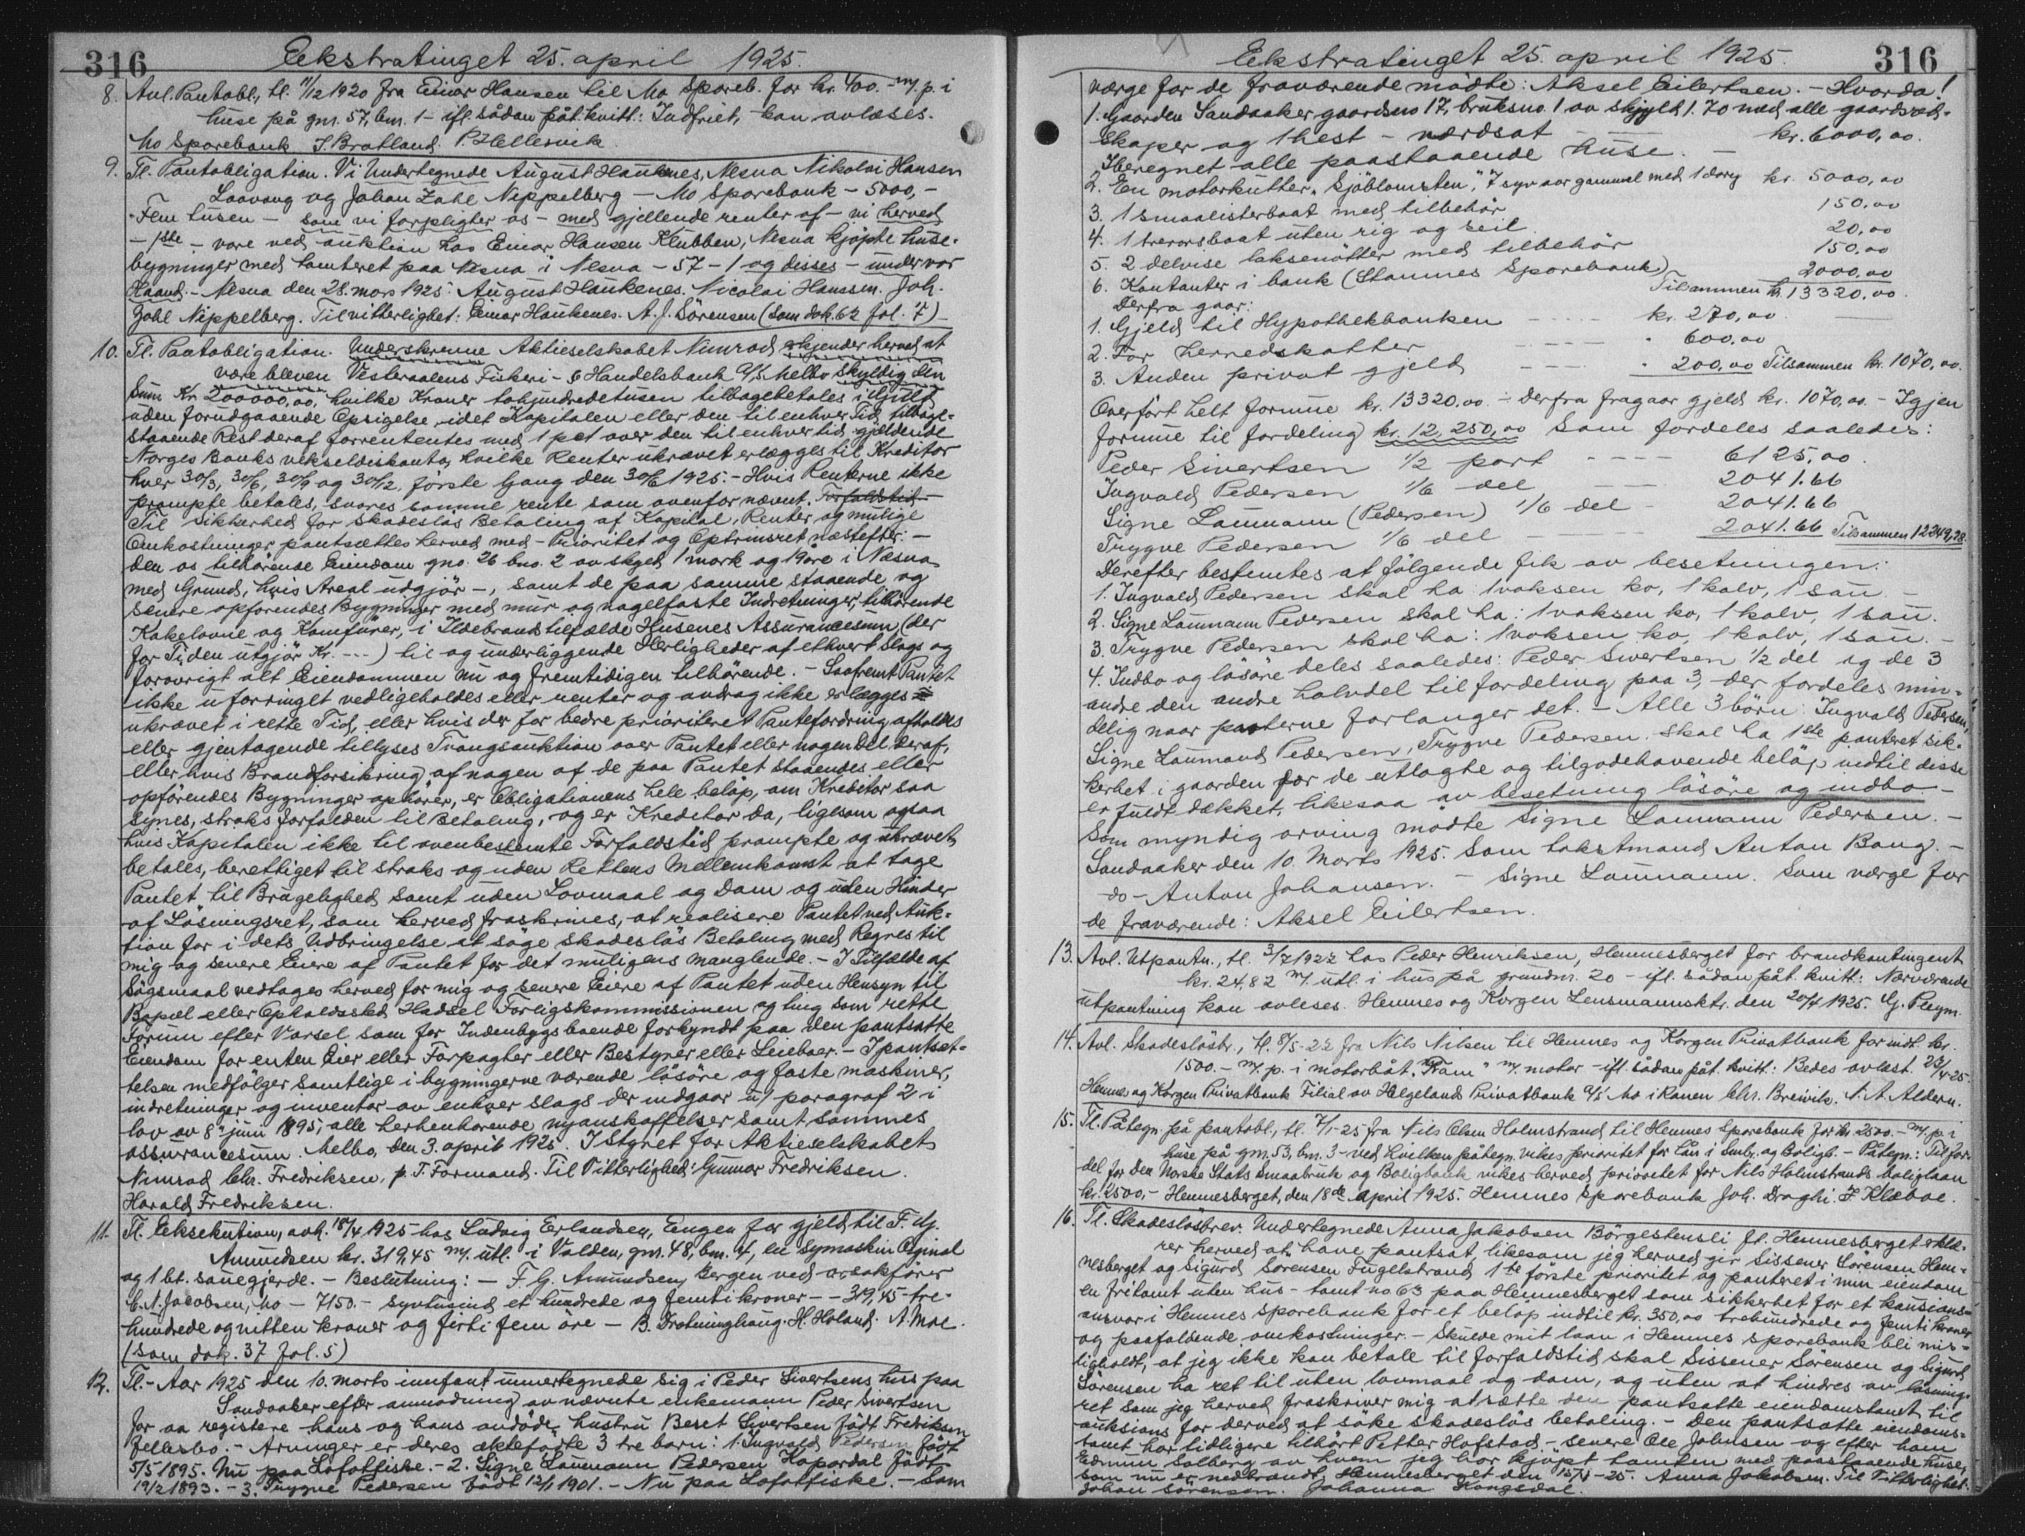 316
Ekstratinget 25. april 1925.
8. Avl. Pantobl., tl. 11/12 1920 fra Einar Hansen til Mo Spareb. for kr. 400.- m. p. i
huse på gnr. 57, bnr. 1 - ifl. sådan påt. kvitt: Indfriet, kan avlæses.
Mo Sparebank J. Bratland P. Hellesvik
9. Tl. Pantobligation. Vi Undertegnede August Haukenes, Nesna Nikolai Hansen
Laavong og Johan Zahl Nippelberg - Mo Sparebank - 5000,-
Fem tusen - som vi forpligter os - med gjellende renter af - vi herved
- 1ste - vore ved auktion hos Einar Hansen Klubben, Nesna kjøpte huse-
bygninger med tomteret paa Nesna i Nesna - 57 - 1 og disses - under vor
Haand. - Nesna den 28. mars 1925 August Haukenes. Nicolai Hanssen. Joh.
Zahl Nippelberg. Til vitterlighet: Einar Haukenes. A. J. Sörensen (som dok. 62 fol. 7)
10. Tl. Pantobligation. Underskrevne Aktieselskabet Nimrod erkjender herved at
være bleven Vesteraalens Fiskeri- & Handelsbank A/S Melbo skyldig den
Sum Kr. 200000,00, hvilke Kroner tohundredetusen tilbagebetales
uden forudgaaende Opsigelse, idet Kapitalen eller den til enhver Tid tilbage-
staaende Rest deraf forrententes med 1 pct over den til enhver tid gjældende
Norges Banks vekseldiskonto, hvilke Renter ukrævet erlægges til Kreditor
hver 30/3, 30/6, 30/9 og 30/12. første Gang den 30/6 1925. - Hvis Renterne ikke
prompte betales, svares samme rente som ovenfor nævnt. Forfaldstid
Til sikkerhed for skadeslös Betaling af Kapital, Renter og mulige
Omkostninger pantsættes herved med - Prioritet og Optrinsret næstefter: -
den os tilhørende Eiendom gno. 26 bno. 2 av skyld 1 mark og 19 öre i Næsna
med Grund, hvis Areal udgjör -, samt de paa samme staaende og
senere opförendes Bygninger med mur og nagelfaste Indretninger, tilhörende
Kakelovne og Komfürer, i Ildebrandstilfælde Husenes Assurancesum (der
for Tiden utgjör Kr. ---) til og underliggende Herligheder af ethvert Slags og
forøvrigt alt Eiendommen nu og fremtidigen tilhörende. - Saafremt Pantet
ikke uforringet vedligeholdes eller renter og avdrag ikke erlægges
ukrævet i rette Tid, eller hvis der for bedre prioriteret Pantefordring afholdes
eller gjentagende tillyses Tvangsauktion over Pantet eller nogen Del deraf,
eller hvis Brandforsikring af nogen af de paa Pantet staaendes eller
opförendes Bygninger ophører, er Obligationens hele belöp, om Kreditor saa
synes, straks forfalden til Betaling, og er Kreditor da, ligesom ogsaa
hvis Kapitalen ikke til ovenbestemte Forfaldstid prompte og ukrævet
betales, berettiget til straks og uden Rettens Mellemkomst at tage
Pantet til Brugelighed samt uden Lovmaal og Dom og uden Hinder
af Lösningsret, som herved fraskrives, at realisere Pantet ved Auk-
tion for i dets Udbringelse at söge skadeslös Betaling med Regres til
mig og senere Eiere af Pantet for det muligens manglende. - I Tilfælde af
Sögsmaal vedtages herved for mig og senere Eiere af Pantet uden Hensyn til
Bopæl eller Opholdssted Hadsel Forligskommissionen og ting som rette
Forum efter Varsel som for Indenbygsboende forkyndt paa den pantsatte
Eiendom for enten Eier eller Forpagter eller Bestyrer eller Leieboer. - I pantset-
telsen medfölger samtlige i bygningerne værende lösöre og faste maskiner,
indretninger og inventar av enhver slags der indgaar u/ paragraf 2 i
lov av 8' juni 1895, alle herhenhørende nyanskaffelser samt sammes
assurancesum. Melbo, den 3. april 1925. I Styret for Aktieselskabet
Nimrod Chr. Fredriksen, p. T. Formand. Til Vitterlighed: Gunnar Fredriksen.
Harald Fredriksen.
11. Tl. Eksekution, avh. 18/4 1925 hos Ludvig Erlandsen, Engen for gjeld til F. G.
Amundsen kr. 319,45 m. utl. i Volden, gnr. 48, bnr. 4, en Symaskin Orginal
og 1 bt. sauegjerde. - Beslutning: - F. G. Amundsen, Bergen ved orsakförer
C. N. Jacobsen, Mo - 7150.- syvtusind et hundrede og femti kroner - - 319,45 tre-
hundrede og nitten kroner og förti fem öre - B. Drotninghaug. H. Holand. A. Moe.
(som dok. 37 fol. 5)
12. Tl. - Aar 1925 den 10. marts innfant unnertegnede sig i Peder Sivertsens huss paa
Sandaaker efter anmodning av nævnte enkemann Peder Sivertsen
for aa registere hans og hans avdöde hustru Beret Sivertsen födt Fredriksen
Jellesbo. - Arvinger er deres æktefödte 3 tre barn: 1. Ingvald Pedersen födt
5/5 1895. Nu paa Lofotfiske. - 2. Signe Laumann Pedersen Hopardal födt
19/2 1893. - 3. Trygve Pedersen födt 12/1 1901. - Nu paa Lofotfiske. - Som
316
Ekstratinget 25. april 1925.
værge for de fraværende mödte: Aksel Eilertsen. - Hvorda!
1. Gaarden Sandaaker gaardsno 17, bruksno. 1 av skyld 1.70 med alle gaardsred-
skaper og 1 hest - værdsat kr. 6000,00.
Iberegnet alle paastaaende huse. -
2. En motorkutter "Sjöblomsten", 7 syv aar gammel med 1 dory kr. 5000,00
3. 1 smaalisterbaat med tilbehör 150,00
4. 1 trerorsbaat uten rig og seil 20,00
5. 2 delvise laksenötter med tilbehör 150,00
6. Kontanter i bank (Stamnes Sparebank) 2000,00
Tilsammen kr. 13320,00.
Derfra gaar:
1. Gjeld til Hypothekbanken - - - - kr. 270,00
2. For herredskatter - - - - " 600,00
3. Anden privat gjeld - - - - " 200,00 Tilsammen kr. 1070,00.
Overfört helt formue kr. 13320,00 - Derfra fragaar gjeld kr. 1070,00. - Igjen
formue til fordeling kr. 12,250,00 Som fordeles saaledes:
Peder Sivertsen 1/2 part - - - - 6125,00.
Ingvald Pedersen 1/6 del - - - 2041.66
Signe Laumann (Pedersen) 1/6 del - 2041.66
Trygve Pedersen 1/6 del - - - - 2041.66 Tilsammen 12249,98.
Derefter bestemtes at følgende fik av besetningen:
1. Ingvald Pedersen skal ha 1 voksen ko, 1 kalv, 1 sau. -
2. Signe Laumann Pedersen skal ha: 1 voksen ko, 1 kalv, 1 sau.
3. Trygve Pedersen skal ha: 1 voksen ko, 1 kalv, 1 sau. -
4. Indbo og lösöre deles saaledes: Peder Sivertsen 1/2 del og de 3
andre den andre halvdel til fordeling paa 3, der fordeles min-
delig naar parterne forlanger det. - Alle 3 börn: Ingvald Pedersen,
Signe Laumand Pedersen, Trygve Pedersen. skal ha 1ste panteret sik-
kerhet i gaarden før de utlagte og tilgodehavende belöp indtil disse
er fuldt dækket, likesaa av besetning lösöre og indbo -
Som myndig arving mødte Signe Laumann Pedersen. -
Sandaaker den 10. Marts 1925. Som takstmand Anton Bang. -
do - Anton Johansen. - Signe Laumann. Som værge for
de fraværende: Aksel Eilertsen.
13. Avl. Utpantn., tl. 3/7 1922 hos Peder Henriksen, Hemnesberget for brandkontingent
kr. 24,82 m. utl. i hus på grundnr. 20 - ifl. sådan påt. kvitt: Nærværende
utpantning kan avleses. Hemnes og Korgen Lensmannsktr. den 20/4 1925. G. Pleym.
14. Avl. Skadeslösbr., tl. 8/5-22 fra Nils Nilsen til Hemnes og Korgen Privatbank for indt. kr.
1500.- m. p. i motorbåt "Fram" m. motor - ifl. sådan påt. kvitt: Bedes avlæst. 23/4-25.
Hemnes og Korgen Privatbank Filial av Helgelands Privatbank A/S Mo i Ranen Chr. Breivik. N. A. Aldern.
15. Tl. Påtegn. på pantobl., tl. 7/1-25 fra Nils Olsen Holmstrand til Hemnes Sparebank for kr. 2500.- m. p. i
huse på gnr. 53, bnr. 3 - ved hvilken påtegn. vikes prioritet for Lån i Småbr. og Boligb. - Påtegn: Til for-
del for Den Norske Stats Smaabruk og Boligbank vikes herved prioritet for Nils Holmstrands boliglaan
kr. 2500,- Hemnesberget, den 18de april 1925. Hemnes Sparebank Joh. Draghi. J. Klæboe.
16. Tl. Skadeslösbrev. Undertegnede Anna Jakobsen Börgestensli pt. Hemnesberget erklæ-
rer herved at have pantsat likesom jeg herved gir Sissener Sörensen Hem-
nesberget og Sigurd Sörensen Fugelstrand 1ste förste prioritet og panteret i min eiendom
en frilomt uten hus - tomt no 63 paa Hemnesberget som sikkerhet for et kausions-
ansvar i Hemnes sparebank for et belöp indtil kr. 350,00 trehundrede og femti kroner
og paafaldende omkostninger. - Skulde mit laan i Hemnes sparebank bli mis-
ligholdt, at jeg ikke kan betale til forfaldstid skal Sissener Sörensen og Sigurd
Sörensen ha ret til uten lovmaal og dom, og uten at hindres av lösnings-
ret som jeg herved fraskriver mig at sætte den pantsatte eiendomstomt til
auksions for derved at søke skadeslös betaling. - Den pantsatte eiendoms-
tomt har tidligere tilhört Petter Hofstad - senere Ole Johnsen og efter ham
Edmun Solberg av hvem jeg har kjöpt tomten med paastaaende huse,
som nu er nedbrandt, Hemnesberget den 15/4-25. Anna Jakobsen. Til Vitterlighet:
Johan Sörensen. Johanna Kongsdal.